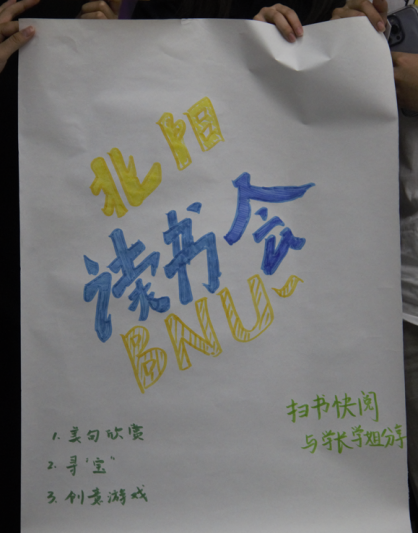 北阳
读书会
BNU~
1. 美句欣赏
2. 寻"宝"
3. 创意游戏
扫书快阅
与学长学姐分享